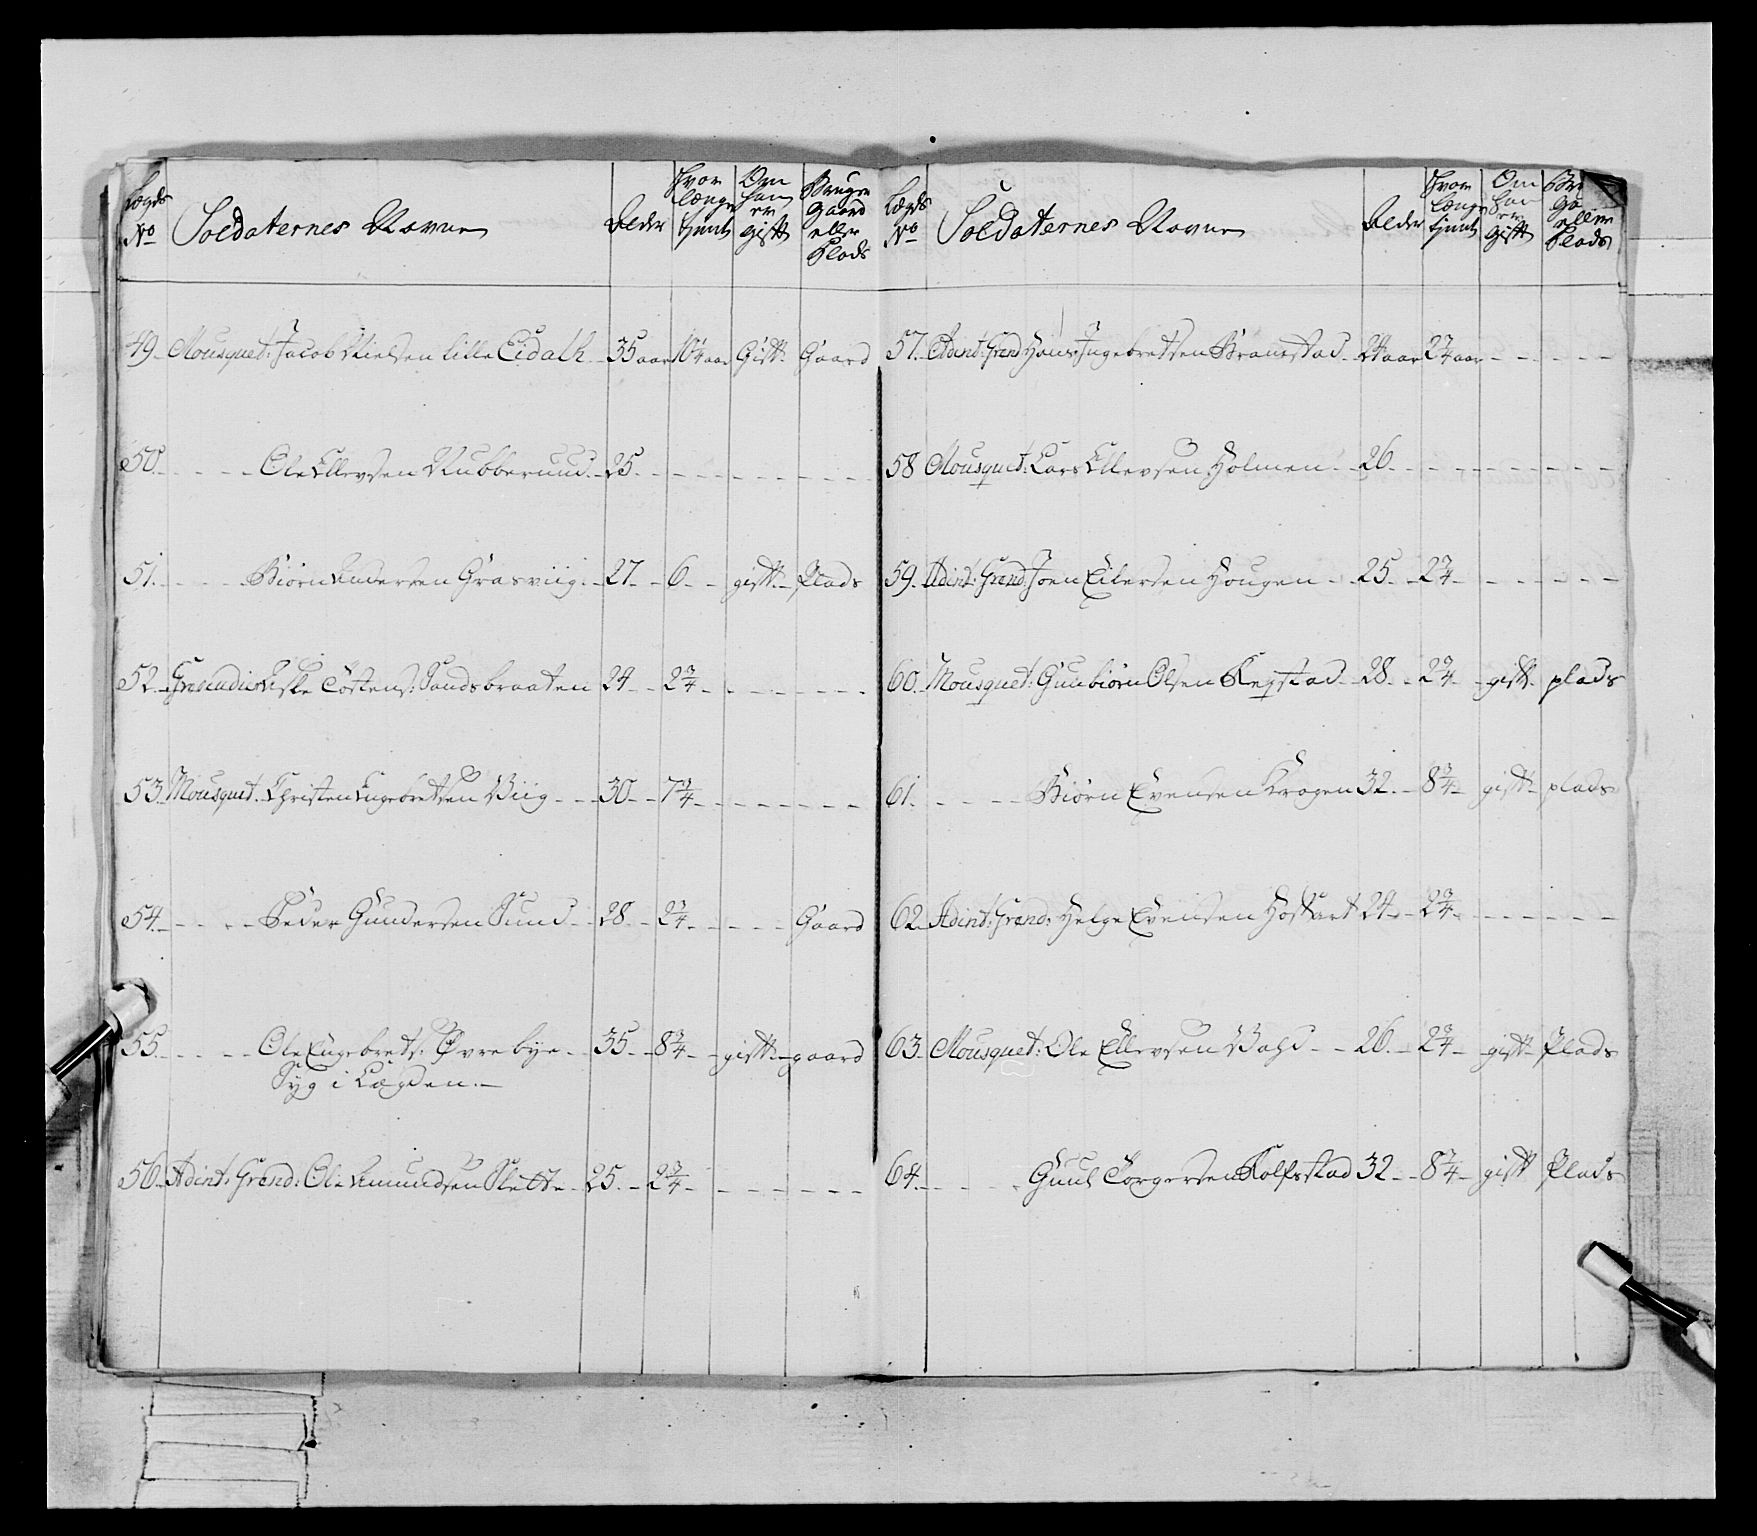 Lægds No | Soldaternes Navne | Alder | Hvor længe tjent | Om han er gift | Bruger Gaard eller Plads
49. Mousquet: Jacob Nielsen lille Eidalh 35 aar 10¼ aar Gift Gaard
50. Ole Ellevsen Nubberuud 25.
51. Biørn Andersen Græsviig 27 6 gift Plads
52. Grenadier Aslе Tostens: Sandsbraaten 24 2¾
53. Mousquet. Christen Engebretsen Viig 30 7¾
54. Peder Gundersen Sund 28 2¾ Gaard
55. Ole Engebrets: Øvrebye 35 8¾ gift gaard
Syg i Lægden.
56. Adint: Grend: Ole Amundsen Slette 25. 2¾
Lægds No | Soldaternes Navne | Alder | Hvor længe tjent | Om han er gift | eller Plads
57. Adint: Grend Hans Ingebretsen 24 aar 2¾ aar
58 Mousquet: Lars Ellevsen Holmen 26
59. Adint: Grend: Joen Eilersen Hougen 25 2¾
60. Mousquet: Gunbiørn Olsen 28 2¾ gift plads
61. Biørn Evensen Kragen 32. 8¾ gift plads
62. Adint: Grend: Helge Evensen 24 2¾
63. Mousquet: Ole Ellevsen 26. 2¾ gift Plads
64. Guul Torgersen Rolfsstad 32 8¾ gift Plads